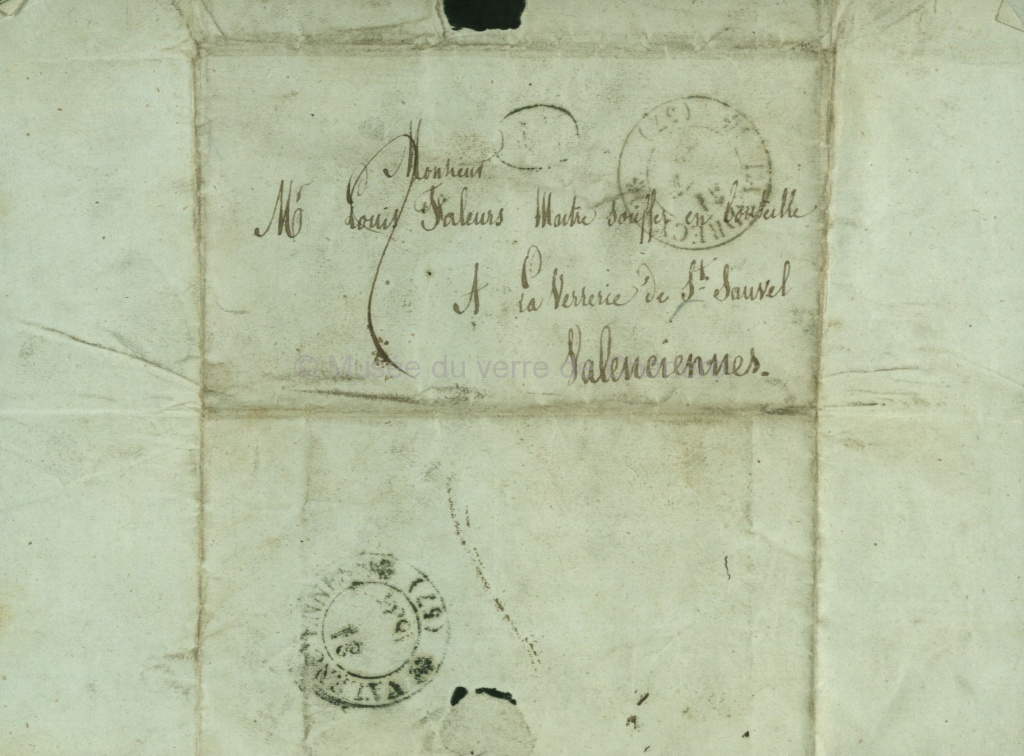 Monsieur
Mr Louis Faleurs Maitre Soufler en bouteille
A la Verrerie de St. Sauvel
Valenciennes.
© Musée du verre de
(57)
VALENCIENNES (57)